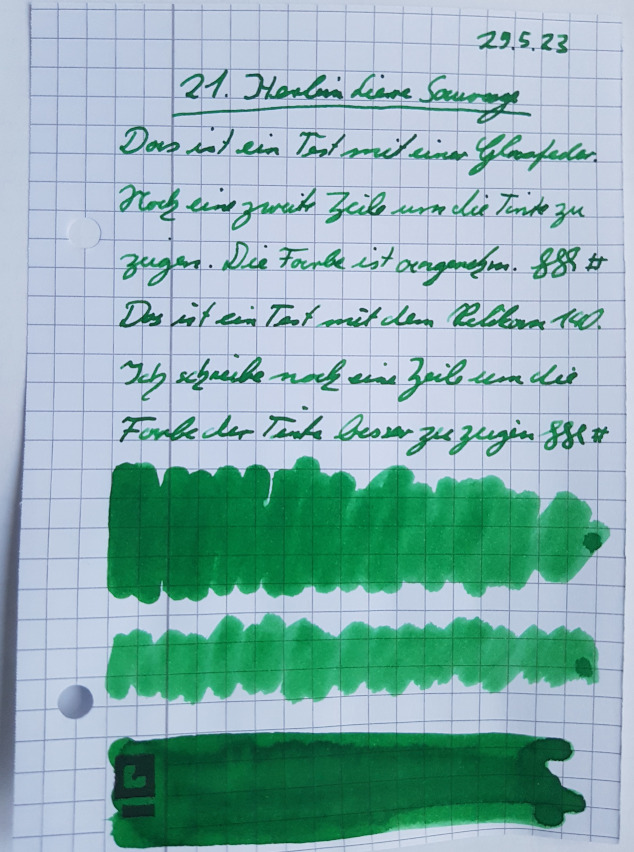 29.5.23
21. Herbin Lierre Sauvage
Das ist ein Test mit einer Glasfeder.
Noch eine zweite Zeile um die Tinte zu
zeigen. Die Farbe ist angenehm. §§§ #
Das ist ein Test mit dem Pelikan 140.
Ich schreibe noch eine Zeile um die
Farbe der Tinte besser zu zeigen §§§ #